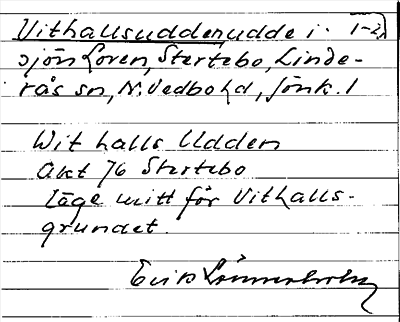 Vithallsudden udde i 1-2
sjön Loren, Stertebo, Linde-
rås sn, N. Vedbo hd, Jönk. l
Wit halls Udden
Akt 76 Stertebo
Läge mitt för Vithalls-
grundet.
Erik